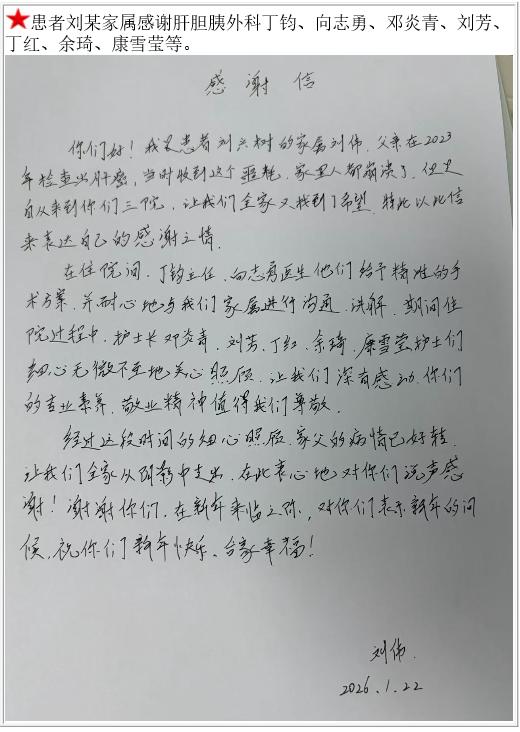 ★患者刘某家属感谢肝胆胰外科丁钧、向志勇、邓炎青、刘芳、
丁红、余琦、康雪莹等。
感 谢 信
你们好！我是患者刘六树的家属刘伟，父亲在2023
年检查出肝癌，当时收到这个噩耗，家里人都崩溃了，但是
自从来到你们三院，让我们全家又找到了希望，特此以此信
来表达自己的感谢之情。
在住院间，丁钧主任、向志勇医生他们给予精准的手
术方案，并耐心地与我们家属进行沟通、讲解，期间住
院过程中，护士长邓炎青，刘芳、丁红、余琦、康雪莹护士们
细心无微不至地关心照顾，让我们深有感动，你们
的专业素养、敬业精神值得我们尊敬。
经过这段时间的细心照顾，家父的病情已好转，
让我们全家从阴影中走出，在此衷心地对你们说声感
谢！谢谢你们，在新年来临之际，对你们表示新年的问
候，祝你们新年快乐、合家幸福！
刘伟.
2026.1.22